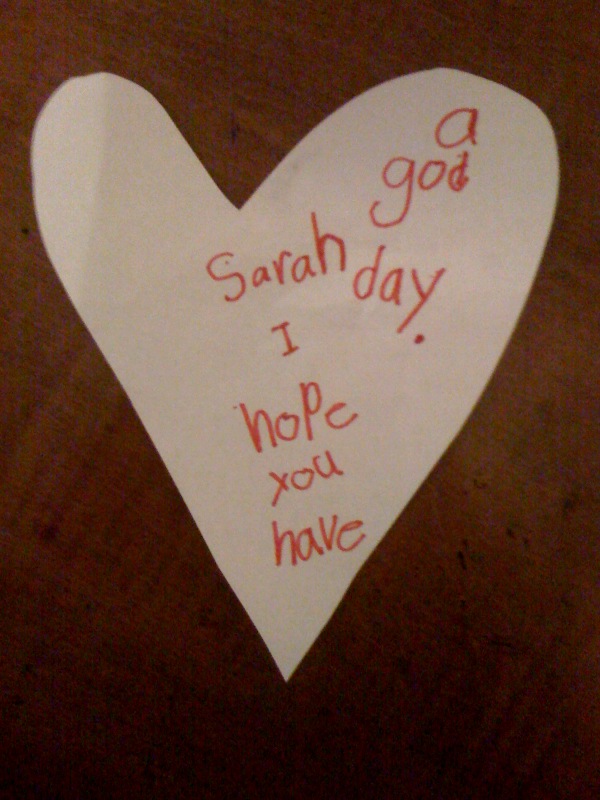 Sarah
I
hope
you
have
a
god
day.